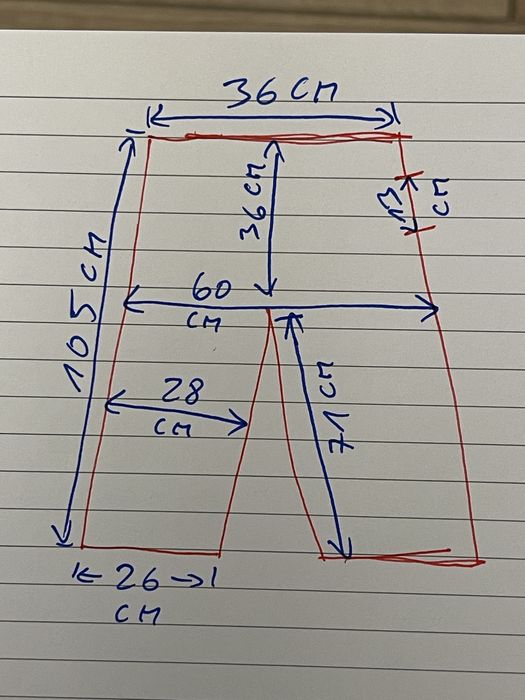 36 CM
36 CM
13
CM
105 CM
60
CM
28
CM
71 CM
26
CM